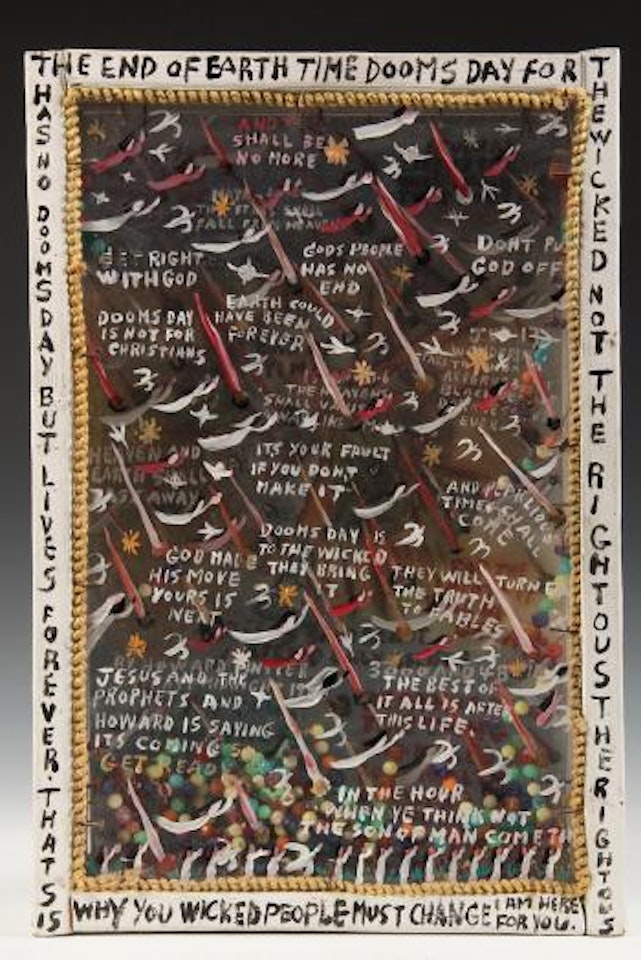 THE END OF EARTH TIME DOOMS DAY FOR
THE WICKED NOT THE RIGHTOUS THE RIGHTOUS
HAS NO DOOMSDAY BUT LIVES FOREVER. THATS IS
WHY YOU WICKED PEOPLE MUST CHANGE I AM HERE
FOR YOU.
AND
SHALL BE
NO MORE
FALL FROM HEAVEN
GET RIGHT
WITH GOD
GODS PEOPLE
HAS NO
END
DONT PU
GOD OFF
EARTH COULD
HAVE BEEN
FOREVER
DOOMS DAY
IS NOT FOR
CHRISTIANS
HEAVEN AND
EARTH SHALL
AWAY
ITS YOUR FAULT
IF YOU DONT
MAKE IT
AND
TIMES SHALL
COME
DOOMS DAY IS
TO THE WICKED
THEY BRING
IT
GOD MADE
HIS MOVE
YOURS IS
NEXT
THEY WILL TURNE
THE TRUTH
TO FABLES
BY HOWARD FINSTER
JESUS AND THE
PROPHETS AND I
HOWARD IS SAYING
ITS COMING SO
GET READY
THE BEST OF
IT ALL IS AFTER
THIS LIFE.
IN THE HOUR
WHEN YE THINK NOT
THE SON OF MAN COMETH